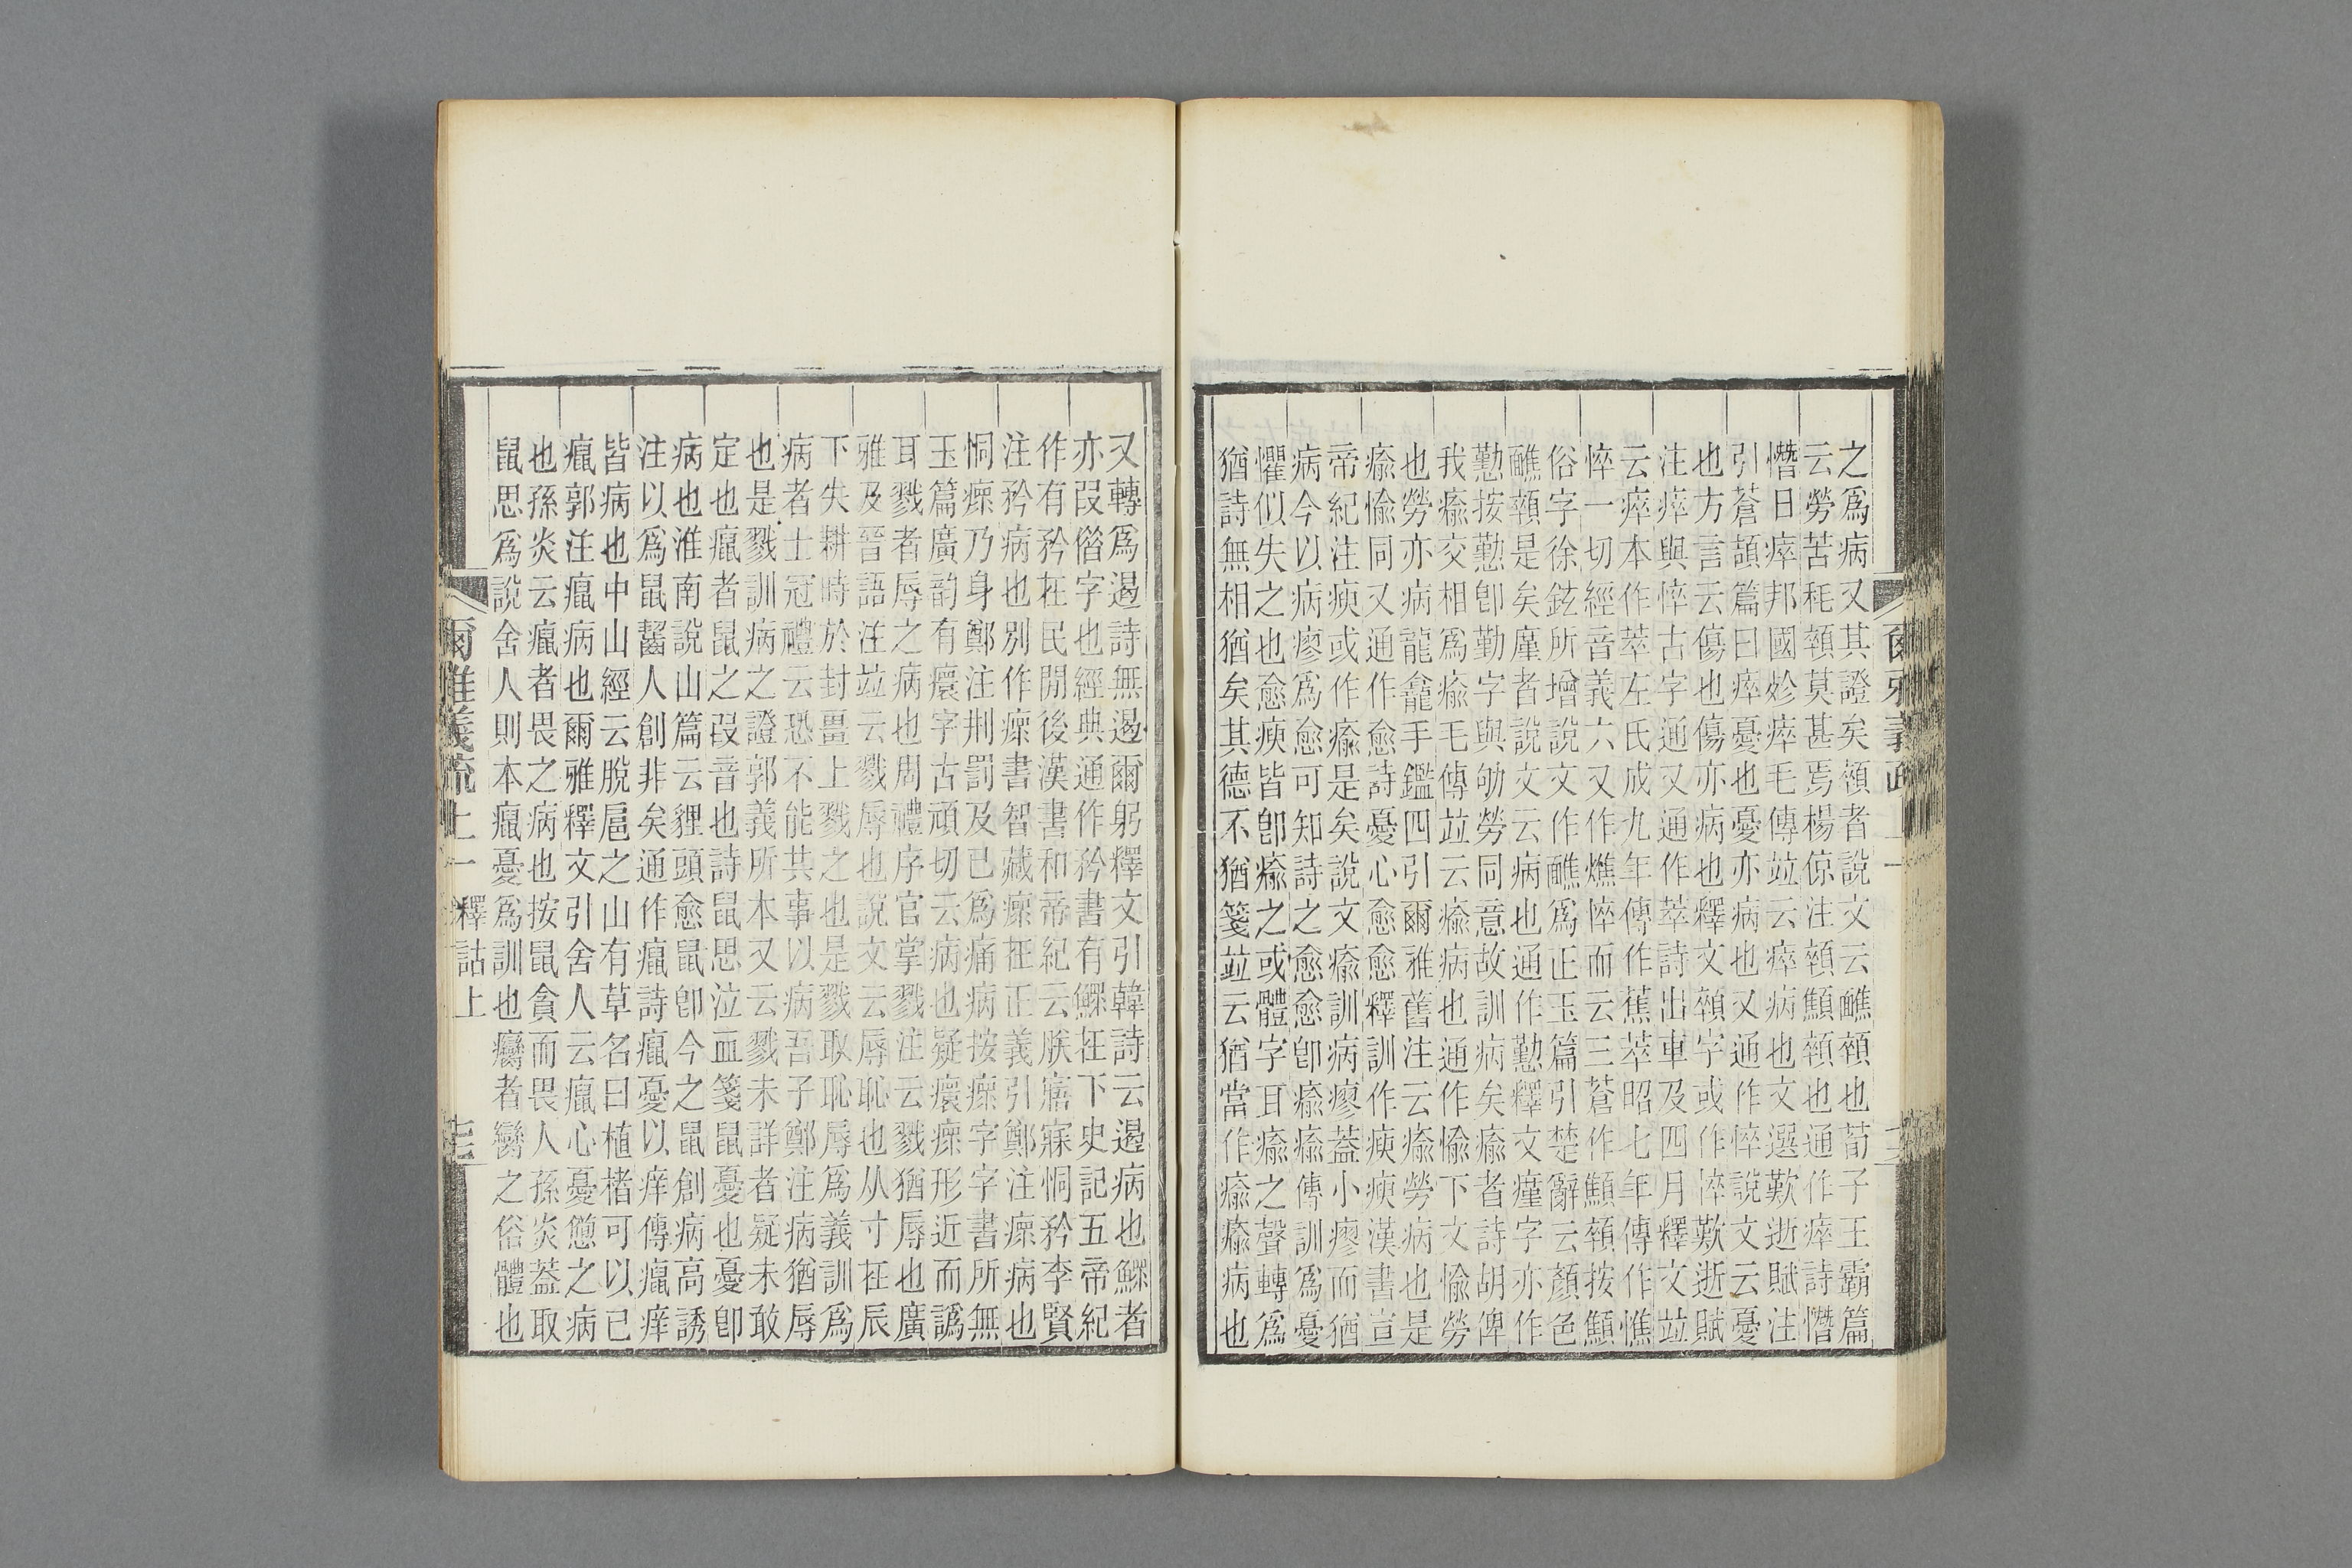 之爲病又其證矣顇者說文云醮顇也荀子王霸篇
云勞苦秏顇莫甚焉楊倞注顇顦顇也通作瘁詩憯
憯日瘁邦國殄瘁毛傳竝云瘁病也文選歎逝賦注
引蒼頡篇曰瘁憂也憂亦病也又通作悴說文云憂
也方言云傷也傷亦病也釋文顇字或作悴歎逝賦
注瘁與悴古字通又通作萃詩出車及四月釋文竝
云瘁本作萃左氏成九年傳作蕉萃昭七年傳作憔
悴一切經音義六又作憔悴而云三蒼作顦顇按顦
俗字徐鉉所增說文作醮爲正玉篇引楚辭云顏色
醮顇是矣廑者說文云病也通作懃釋文瘽字亦作
懃按懃卽勤字與劬勞同意故訓病矣瘉者詩胡俾
我瘉交相爲瘉毛傳竝云瘉病也通作愉下文愉勞
也勞亦病龍龕手鑑四引爾雅舊注云瘉勞病也是
瘉愉同又通作愈詩憂心愈愈釋訓作瘐瘐漢書宣
帝紀注瘐或作瘉是矣說文瘉訓病瘳蓋小瘳而猶
病今以病瘳爲愈可知詩之愈愈卽瘉瘉傳訓爲憂
懼似失之也愈瘐皆卽瘉之或體字耳瘉之聲轉爲
猶詩無相猶矣其德不猶箋竝云猶當作瘉瘉病也爲
又轉爲遏詩無遏爾躬釋文引韓詩云遏病也鰥者
亦叚借字也經典通作矜書有鰥在下史記五帝紀
作有矜在民閒後漢書和帝紀云朕寤寐恫矜李賢
注矜病也別作瘝書智藏瘝在正義引鄭注瘝病也
恫瘝乃身鄭注刑罰及已爲痛病按瘝字字書所無
玉篇廣韵有癏字古頑切云病也疑癏瘝形近而譌
耳戮者辱之病也周禮序官掌戮注云戮猶辱也廣
雅及晉語注竝云戮辱也說文云辱恥也从寸在辰
下失耕時於封畺上戮之也是戮取恥辱爲義訓爲
病者士冠禮云恐不能共事以病吾子鄭注病猶辱
也是戮訓病之證郭義所本又云戮未詳者疑未敢
定也癙者鼠之叚音也詩鼠思泣血箋鼠憂也憂卽
病也淮南說山篇云貍頭愈鼠卽今之鼠創病高誘
注以爲鼠齧人創非矣通作癙詩癙憂以痒傳癙痒
皆病也中山經云脫扈之山有草名曰植楮可以已
癙郭注癙病也爾雅釋文引舍人云癙心憂憊之病
也孫炎云癙者畏之病也按鼠貪而畏人孫炎蓋取
鼠思爲說舍人則本癙憂爲訓也癵者臠之俗體也
爾雅義疏 上一 釋詁上